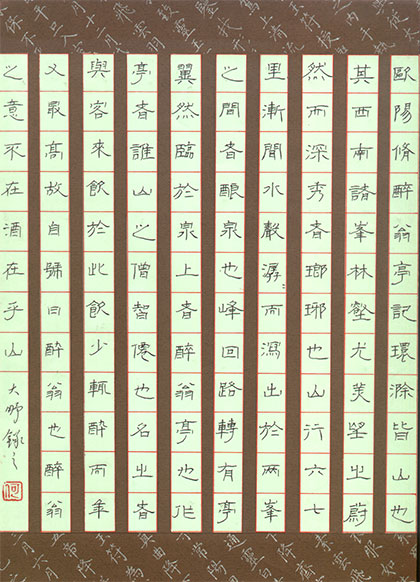 歐陽脩醉翁亭記環滁皆山也
其西南諸峯林壑尤美望之蔚
然而深秀者瑯琊也山行六七
里漸聞水聲潺〻而瀉出於兩峯
之間者釀泉也峰回路轉有亭
翼然臨於泉上者醉翁亭也作
亭者誰山之僧智僊也名之者
與客來飲於此飲少輒醉而年
又最高故自號曰醉翁也醉翁
之意不在酒在乎山 大野錄之